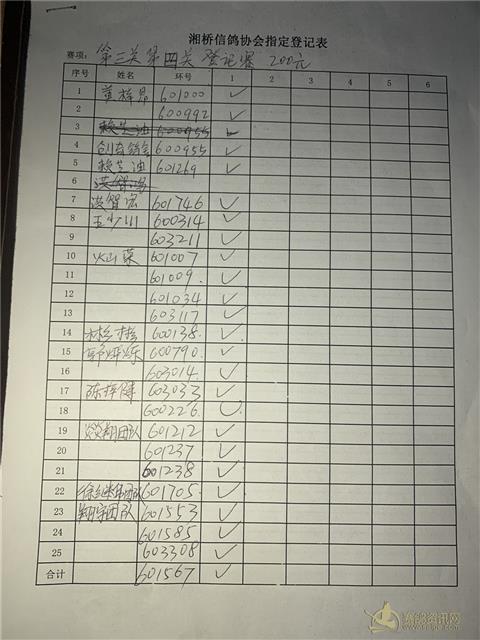 湘桥信鸽协会指定登记表
赛项: 第三关第四关 登记赛 200元
序号 姓名 环号 1 2 3 4 5 6
1 黄梓阳 601000 ✓
2 600992 ✓
3 赖芝迪 600955 ✓
4 600955 ✓
5 赖芝迪 601269 ✓
6
7 601746 ✓
8 王少川 600314 ✓
9 603211 ✓
10 火山荣 601007 ✓
11 601009. ✓
12 601034 ✓
13 603117 ✓
14 600138. ✓
15 600790. ✓
16 603014. ✓
17 陈梓健 603033 ✓
18 600226. ✓
19 601212 ✓
20 601237 ✓
21 601238 ✓
22 601705. ✓
23 翔宇团队 601553 ✓
24 601585 ✓
25 603308 ✓
合计 601567 ✓